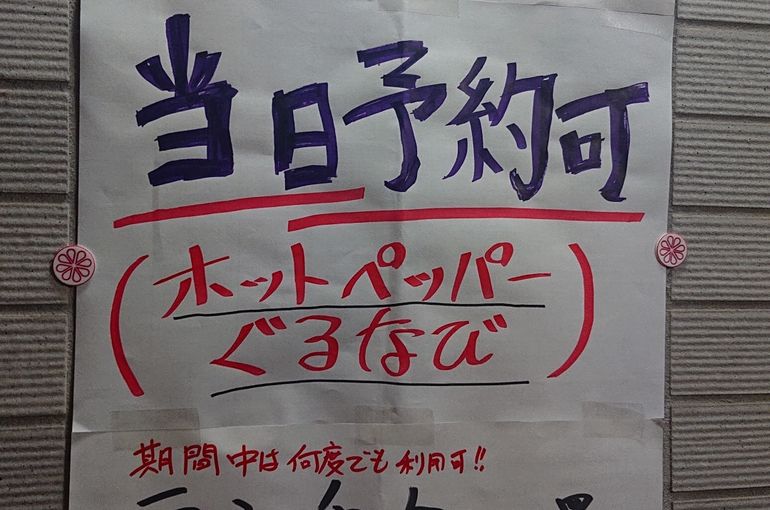 当日予約可
(ホットペッパー
ぐるなび)
期間中は何度でも利用可!!